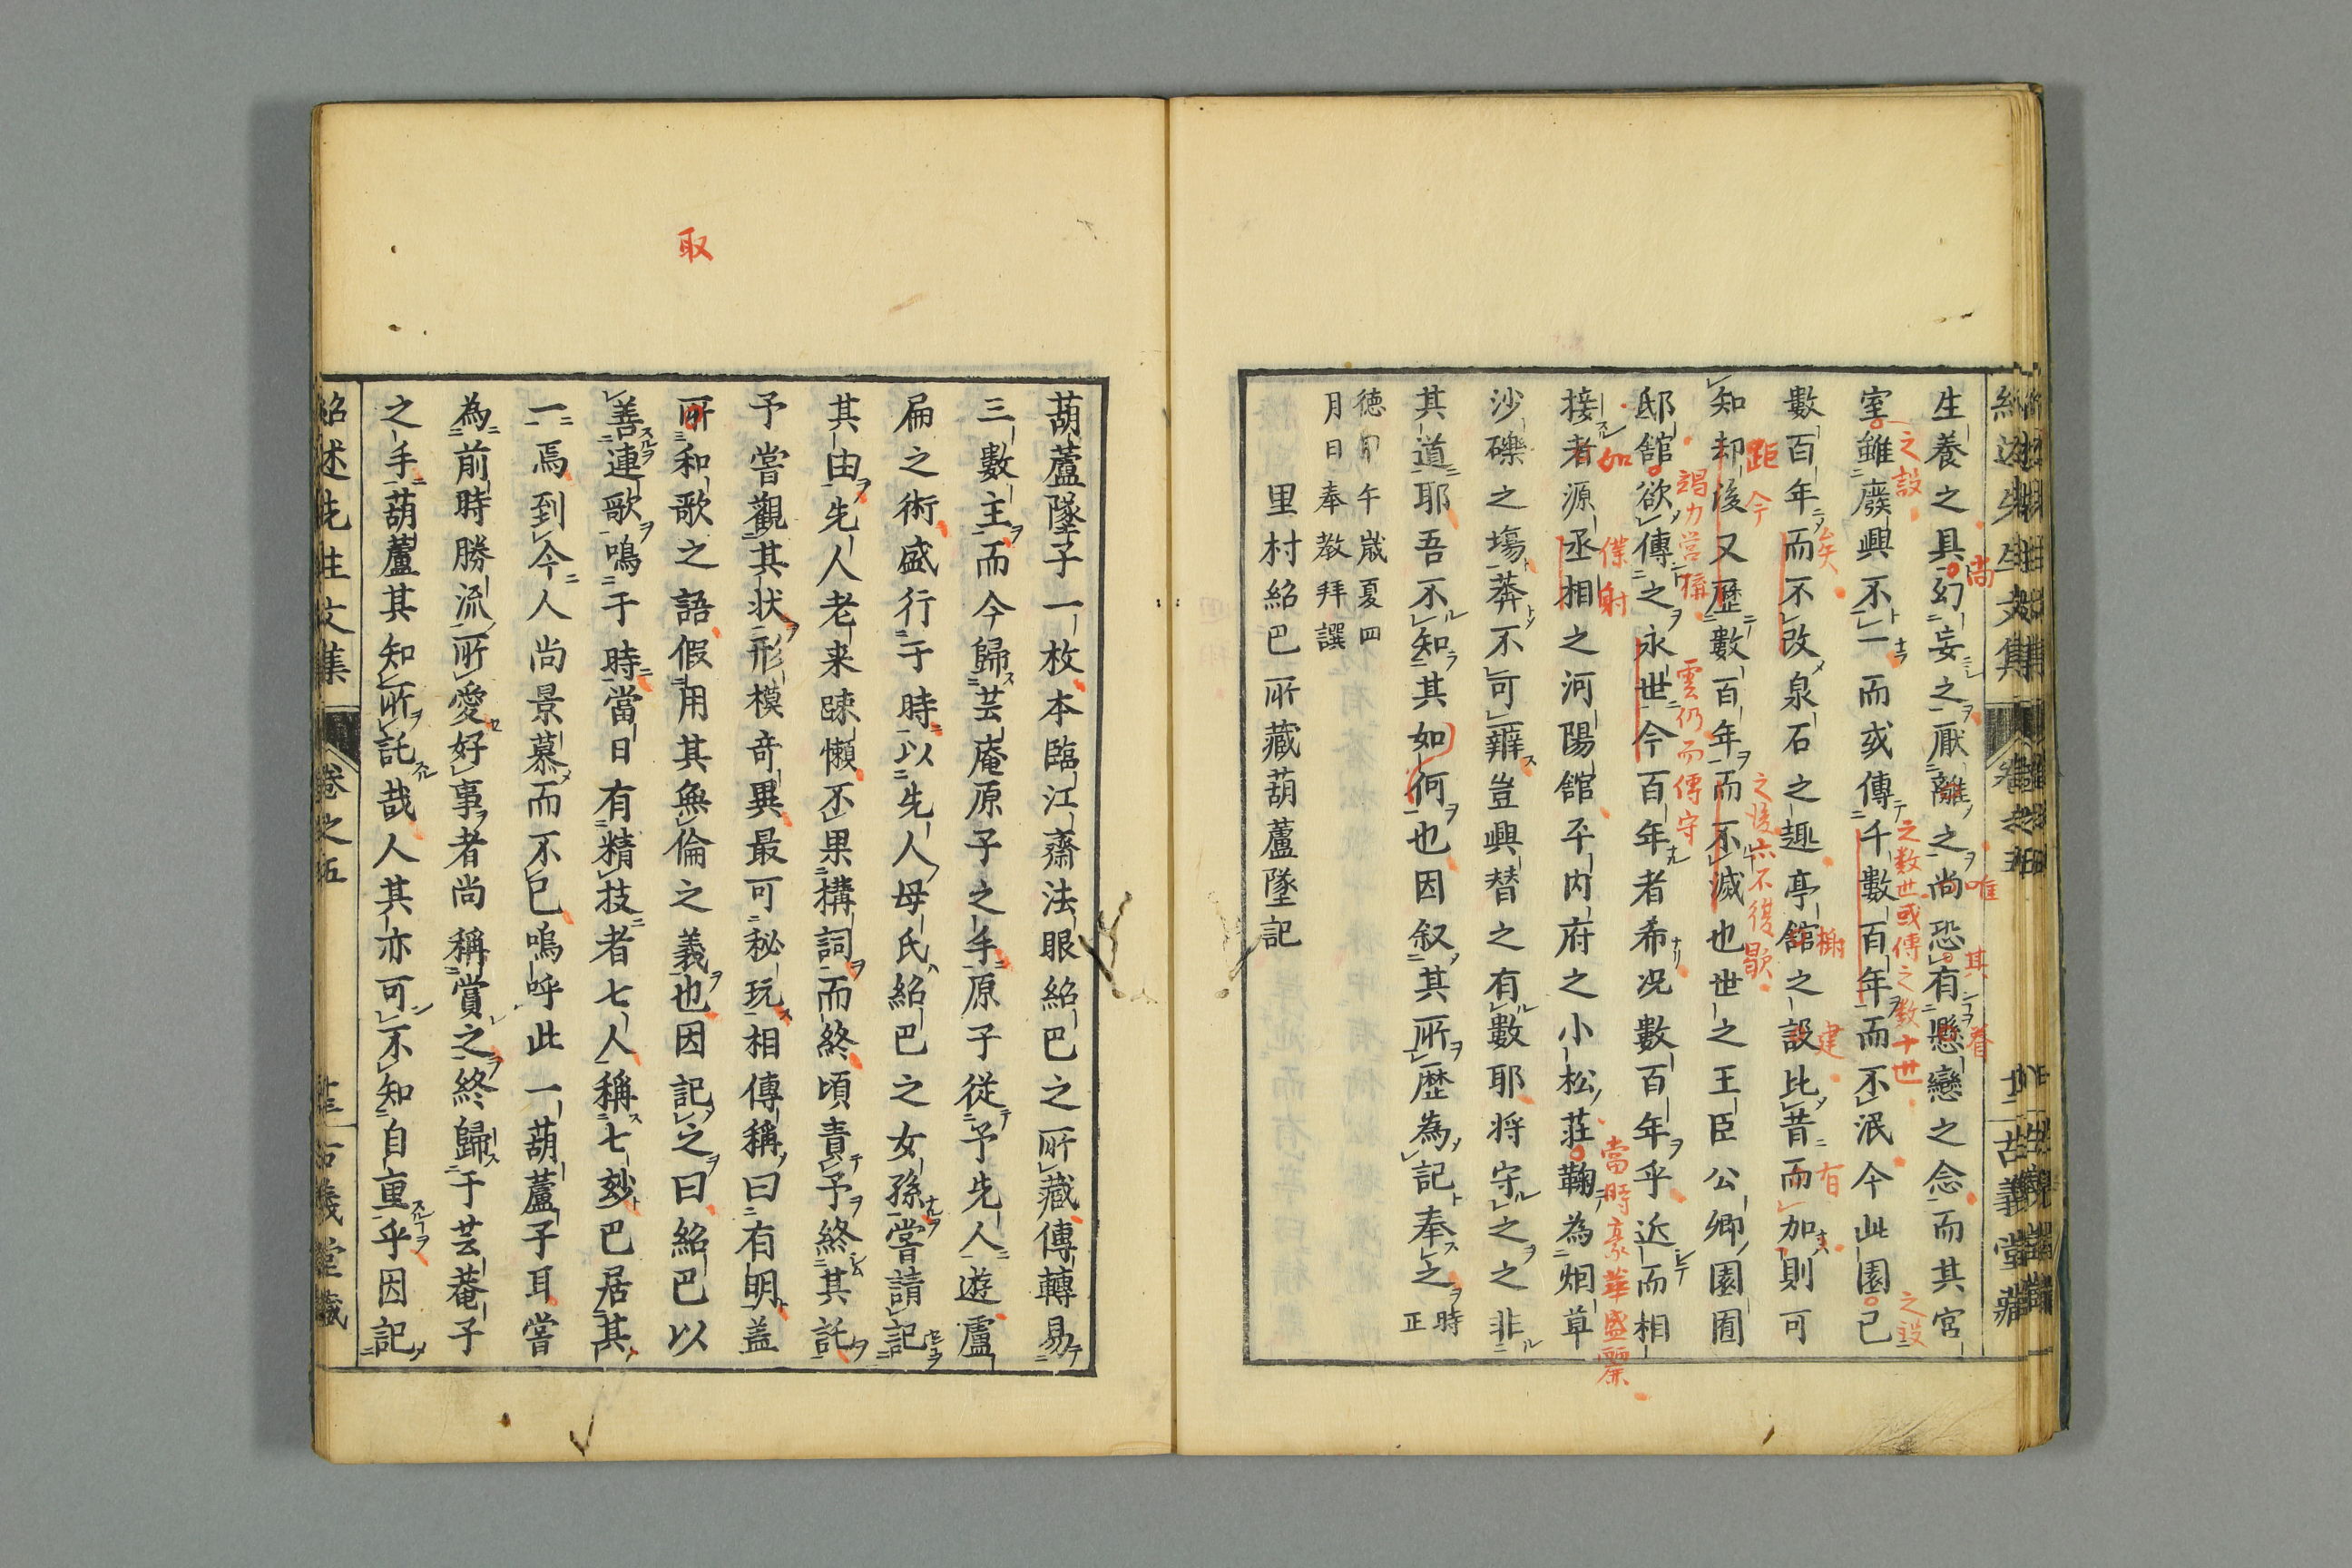 生養之具幻妄之厭離之尚恐有懸戀之念而其宮
室雖廢興不一而或傳千數百年而不泯今此園已
數百年而不改泉石之趣亭館之設比昔而加則可
知却後又歷數百年而不滅也世之王臣公卿園囿
邸館欲傳之永世今百年者希况數百年乎近而相
接者源丞相之河陽館平内府之小松莊鞠為烟草
沙礫之場莽不可辨豈興替之有數耶将守之之非
其道耶吾不知其如何也因叙其所歴為記奉之時正
德甲午歲夏四
月日奉教拜譔
里村紹巴所藏葫蘆墜記
尚
唯
其
眷
之設
之数世或傳之数十世
之設
矣
榭
建
有
距今
之後亦不復歇
竭力営構
雲仍而傳守
如
僕射
當時豪華盛麗
取
葫蘆墜子一枚本臨江齋法眼紹巴之所藏傳轉易
三數主而今歸芸庵原子之手原子從予先人遊盧
扁之術盛行于時以先人母氏紹巴之女孫嘗請記
其由先人老来踈懶不果構詞而終頃責予終其託
予嘗觀其状形模奇異最可秘玩相傳稱曰有明盖
所和歌之語假用其無倫之義也因記之曰紹巴以
善連歌鳴于時當日有精技者七人稱七玅巴居其
一焉到今人尚景慕而不已嗚呼此一葫蘆子耳嘗
為前時勝流所愛好事者尚稱賞之終歸于芸菴子
之手葫蘆其知所託哉人其亦可不知自重乎因記
紹述先生文集
卷之五
古義堂藏